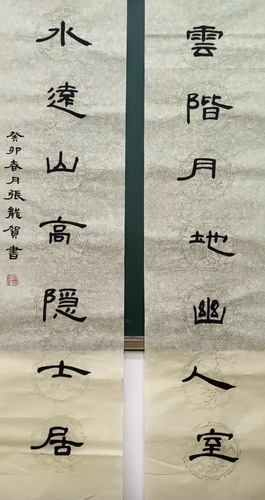 雲階月地幽人室
水遠山高隐士居
癸卯春月張龍賀書